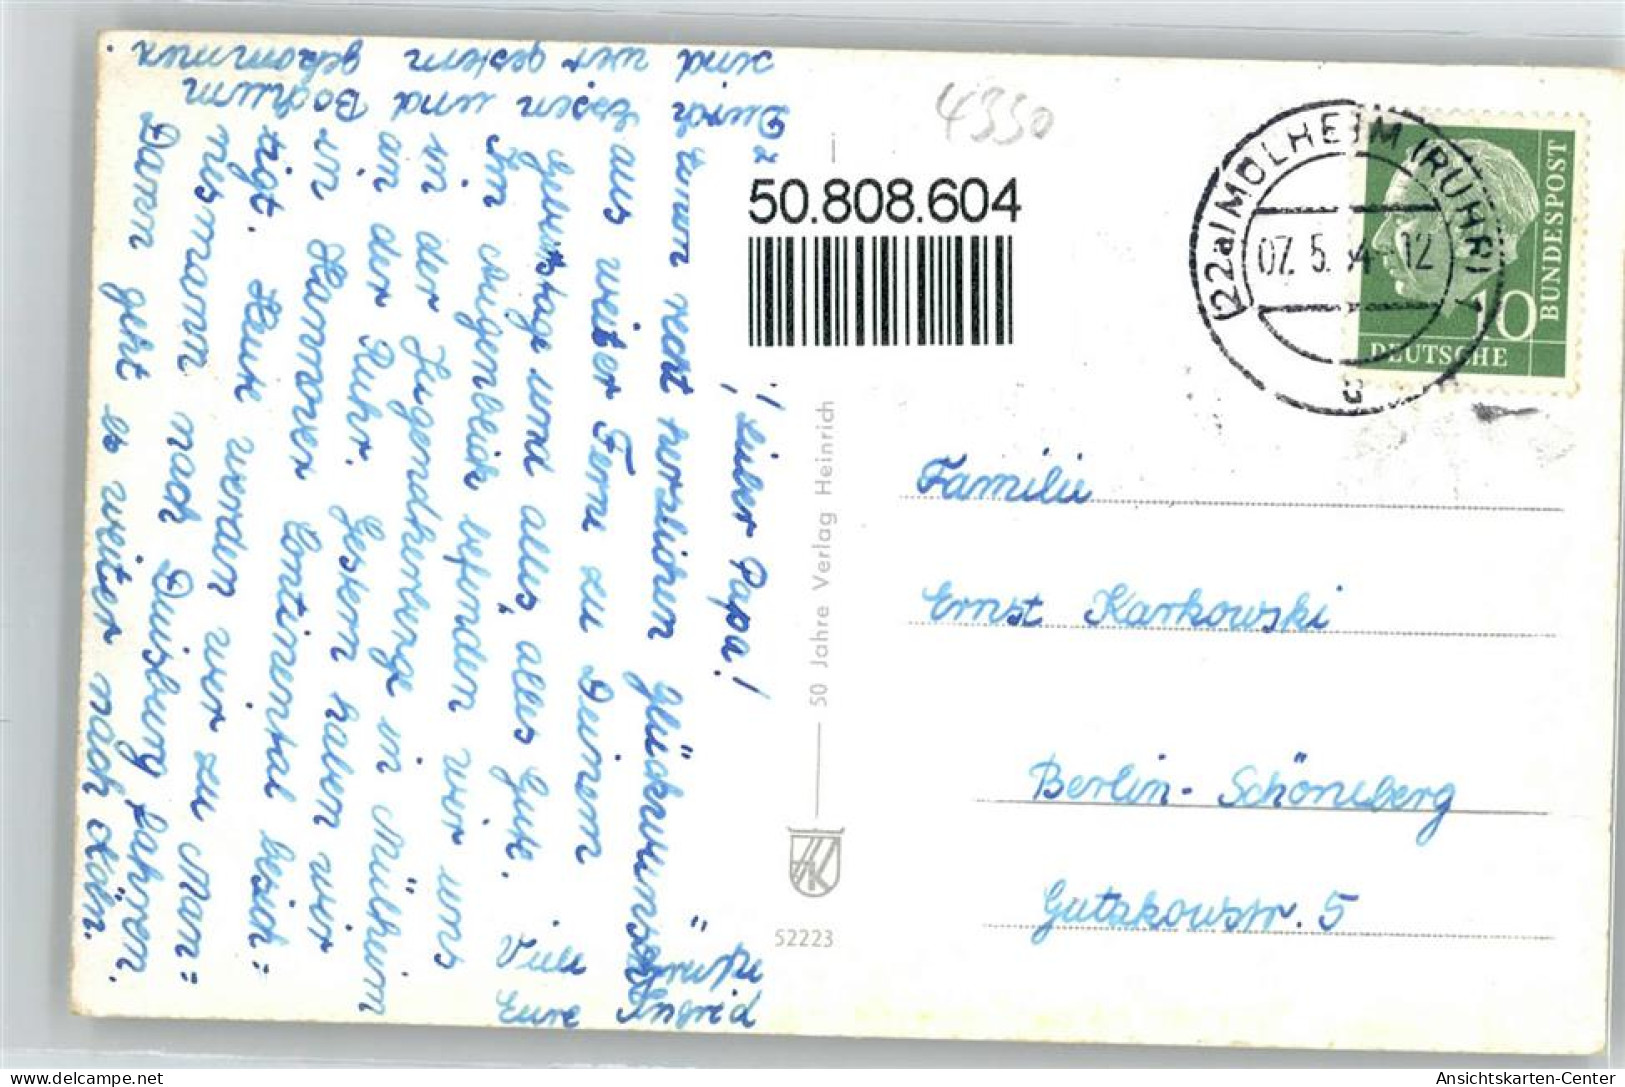 Lieber Papa!
Zum recht herzlichen Glückwunsch
aus weiter Ferne zu Deinem
Geburtstage und alles, alles Gute.
Im Augenblick befinden wir uns
in der Jugendherberge in Mülheim
an der Ruhr. Gestern haben wir
in Hannover Continental besich=
tigt. Heute werden wir zu Man=
nesmann nach Duisburg fahren.
Dann geht es weiter nach Köln.
Durch Essen und Bochum
sind wir gestern gekommen.
Viele Grüße
Eure Ingrid
4350
50.808.604
50 Jahre Verlag Heinrich
52223
(22a) MÜLHEIM (RUHR) 1
07.5.54-12
u
DEUTSCHE
BUNDESPOST
10
Familie
Ernst Karkowski
Berlin-Schöneberg
Gutzkowstr. 5
Ansichtskarten-Center
www.delcampe.net